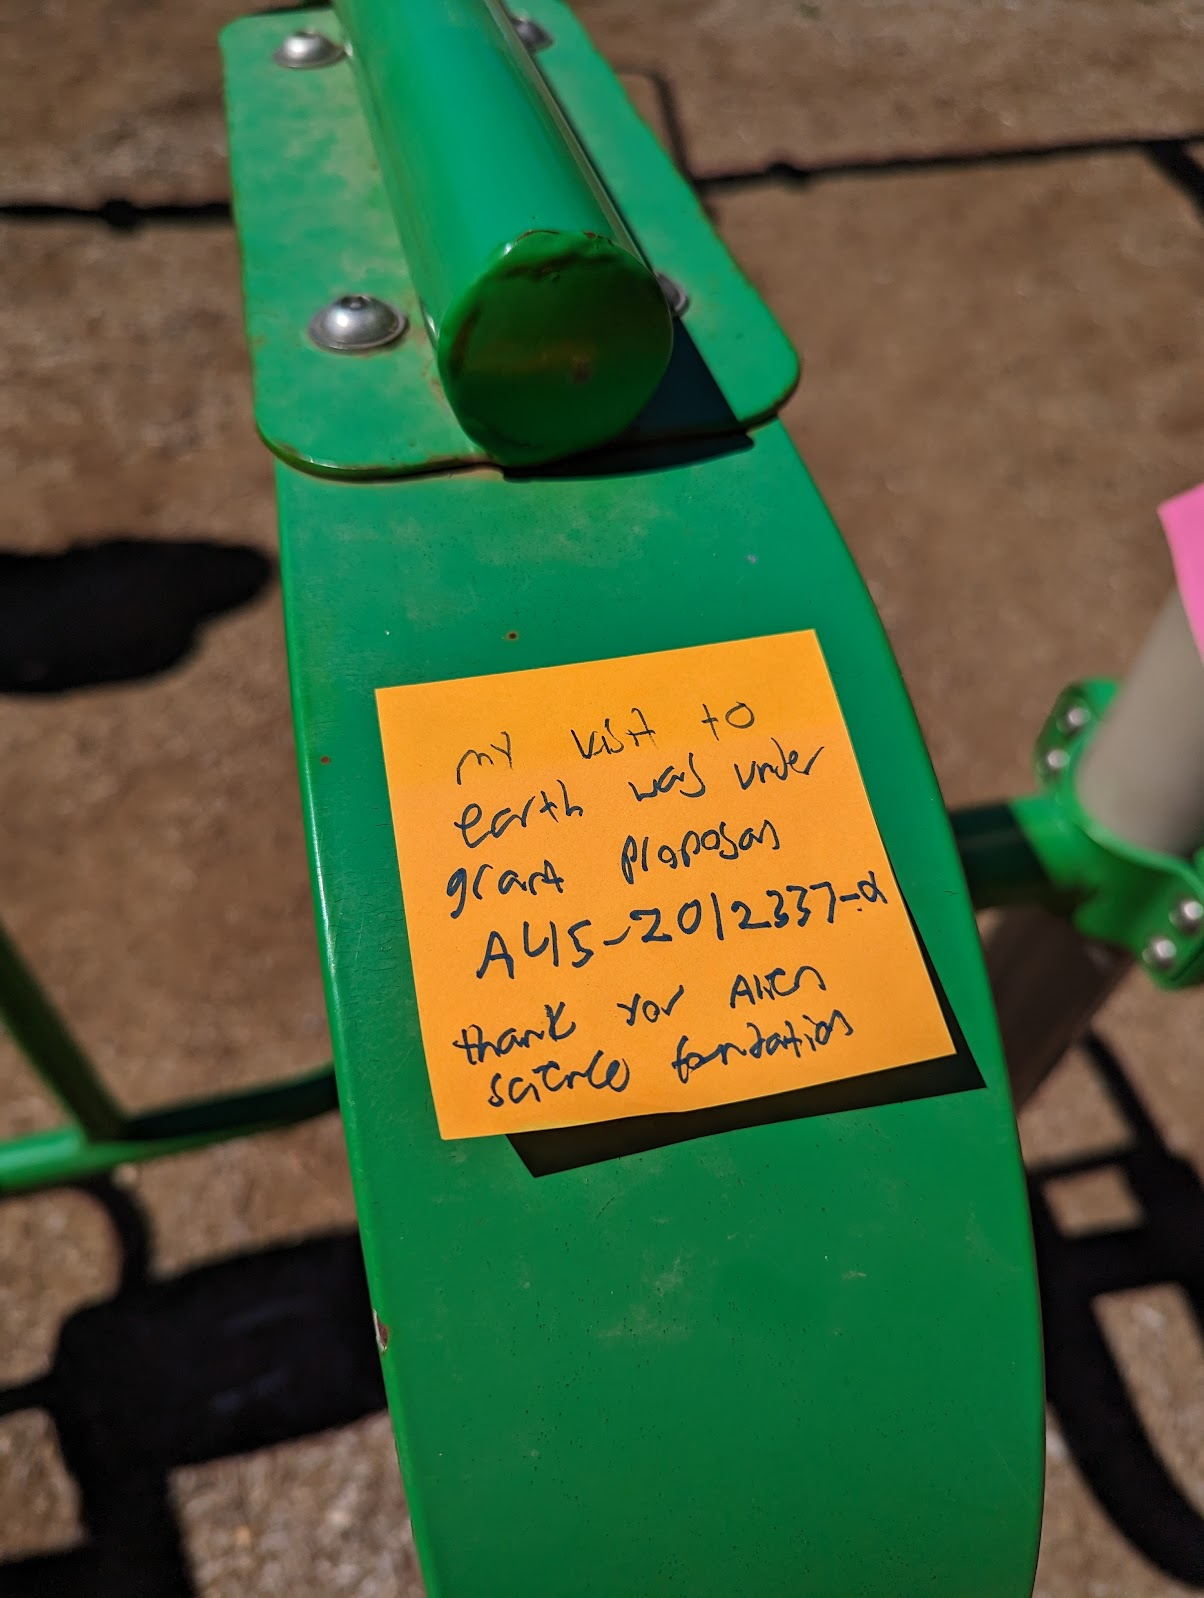 my visit to
earth was under
grant proposal
A45-2012337-α
thank you Alien
science foundation